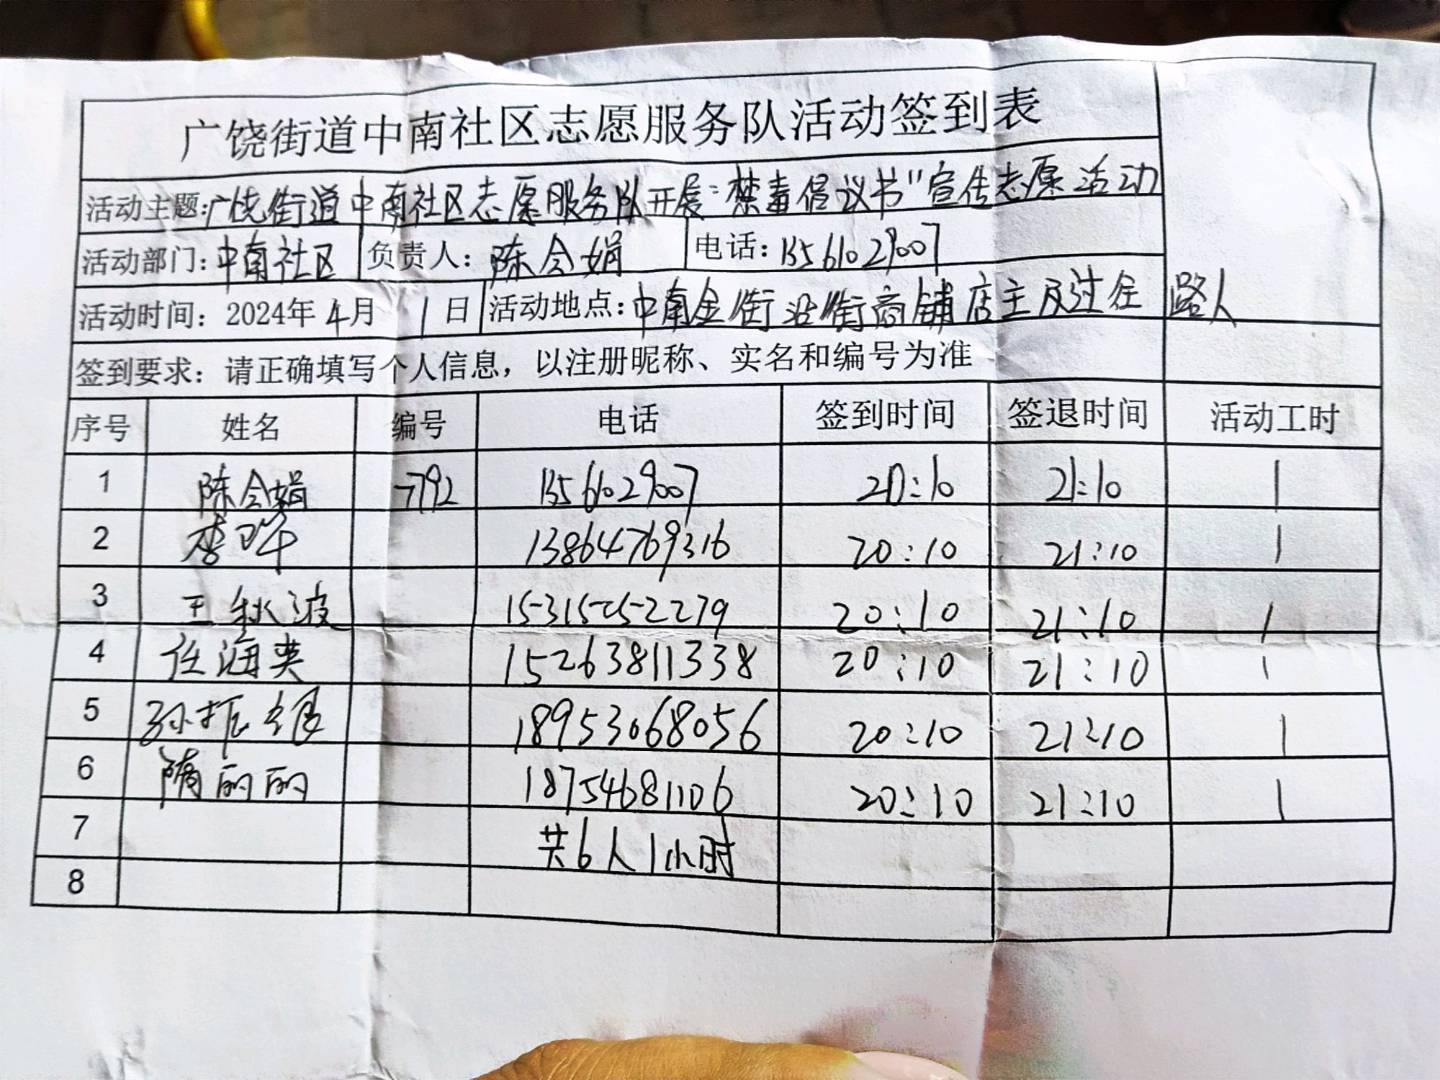 广饶街道中南社区志愿服务队活动签到表
活动主题:广饶街道中南社区志愿服务队开展"禁毒倡议书"宣传志愿活动
活动部门:中南社区 负责人:陈令娟 电话:13561029007
活动时间:2024年4月1日 活动地点:中南金街沿街商铺店主及过往路人
签到要求:请正确填写个人信息,以注册昵称、实名和编号为准
序号 姓名 编号 电话 签到时间 签退时间 活动工时
1 陈令娟 -792 13561029007 20:10 21:10 1
2 李 13864769316 20:10 21:10 1
3 王秋波 15315252279 20:10 21:10 1
4 任海英 15263811338 20:10 21:10 1
5 孙振银 18953068056 20:10 21:10 1
6 隋丽丽 18754681106 20:10 21:10 1
7 共6人1小时
8